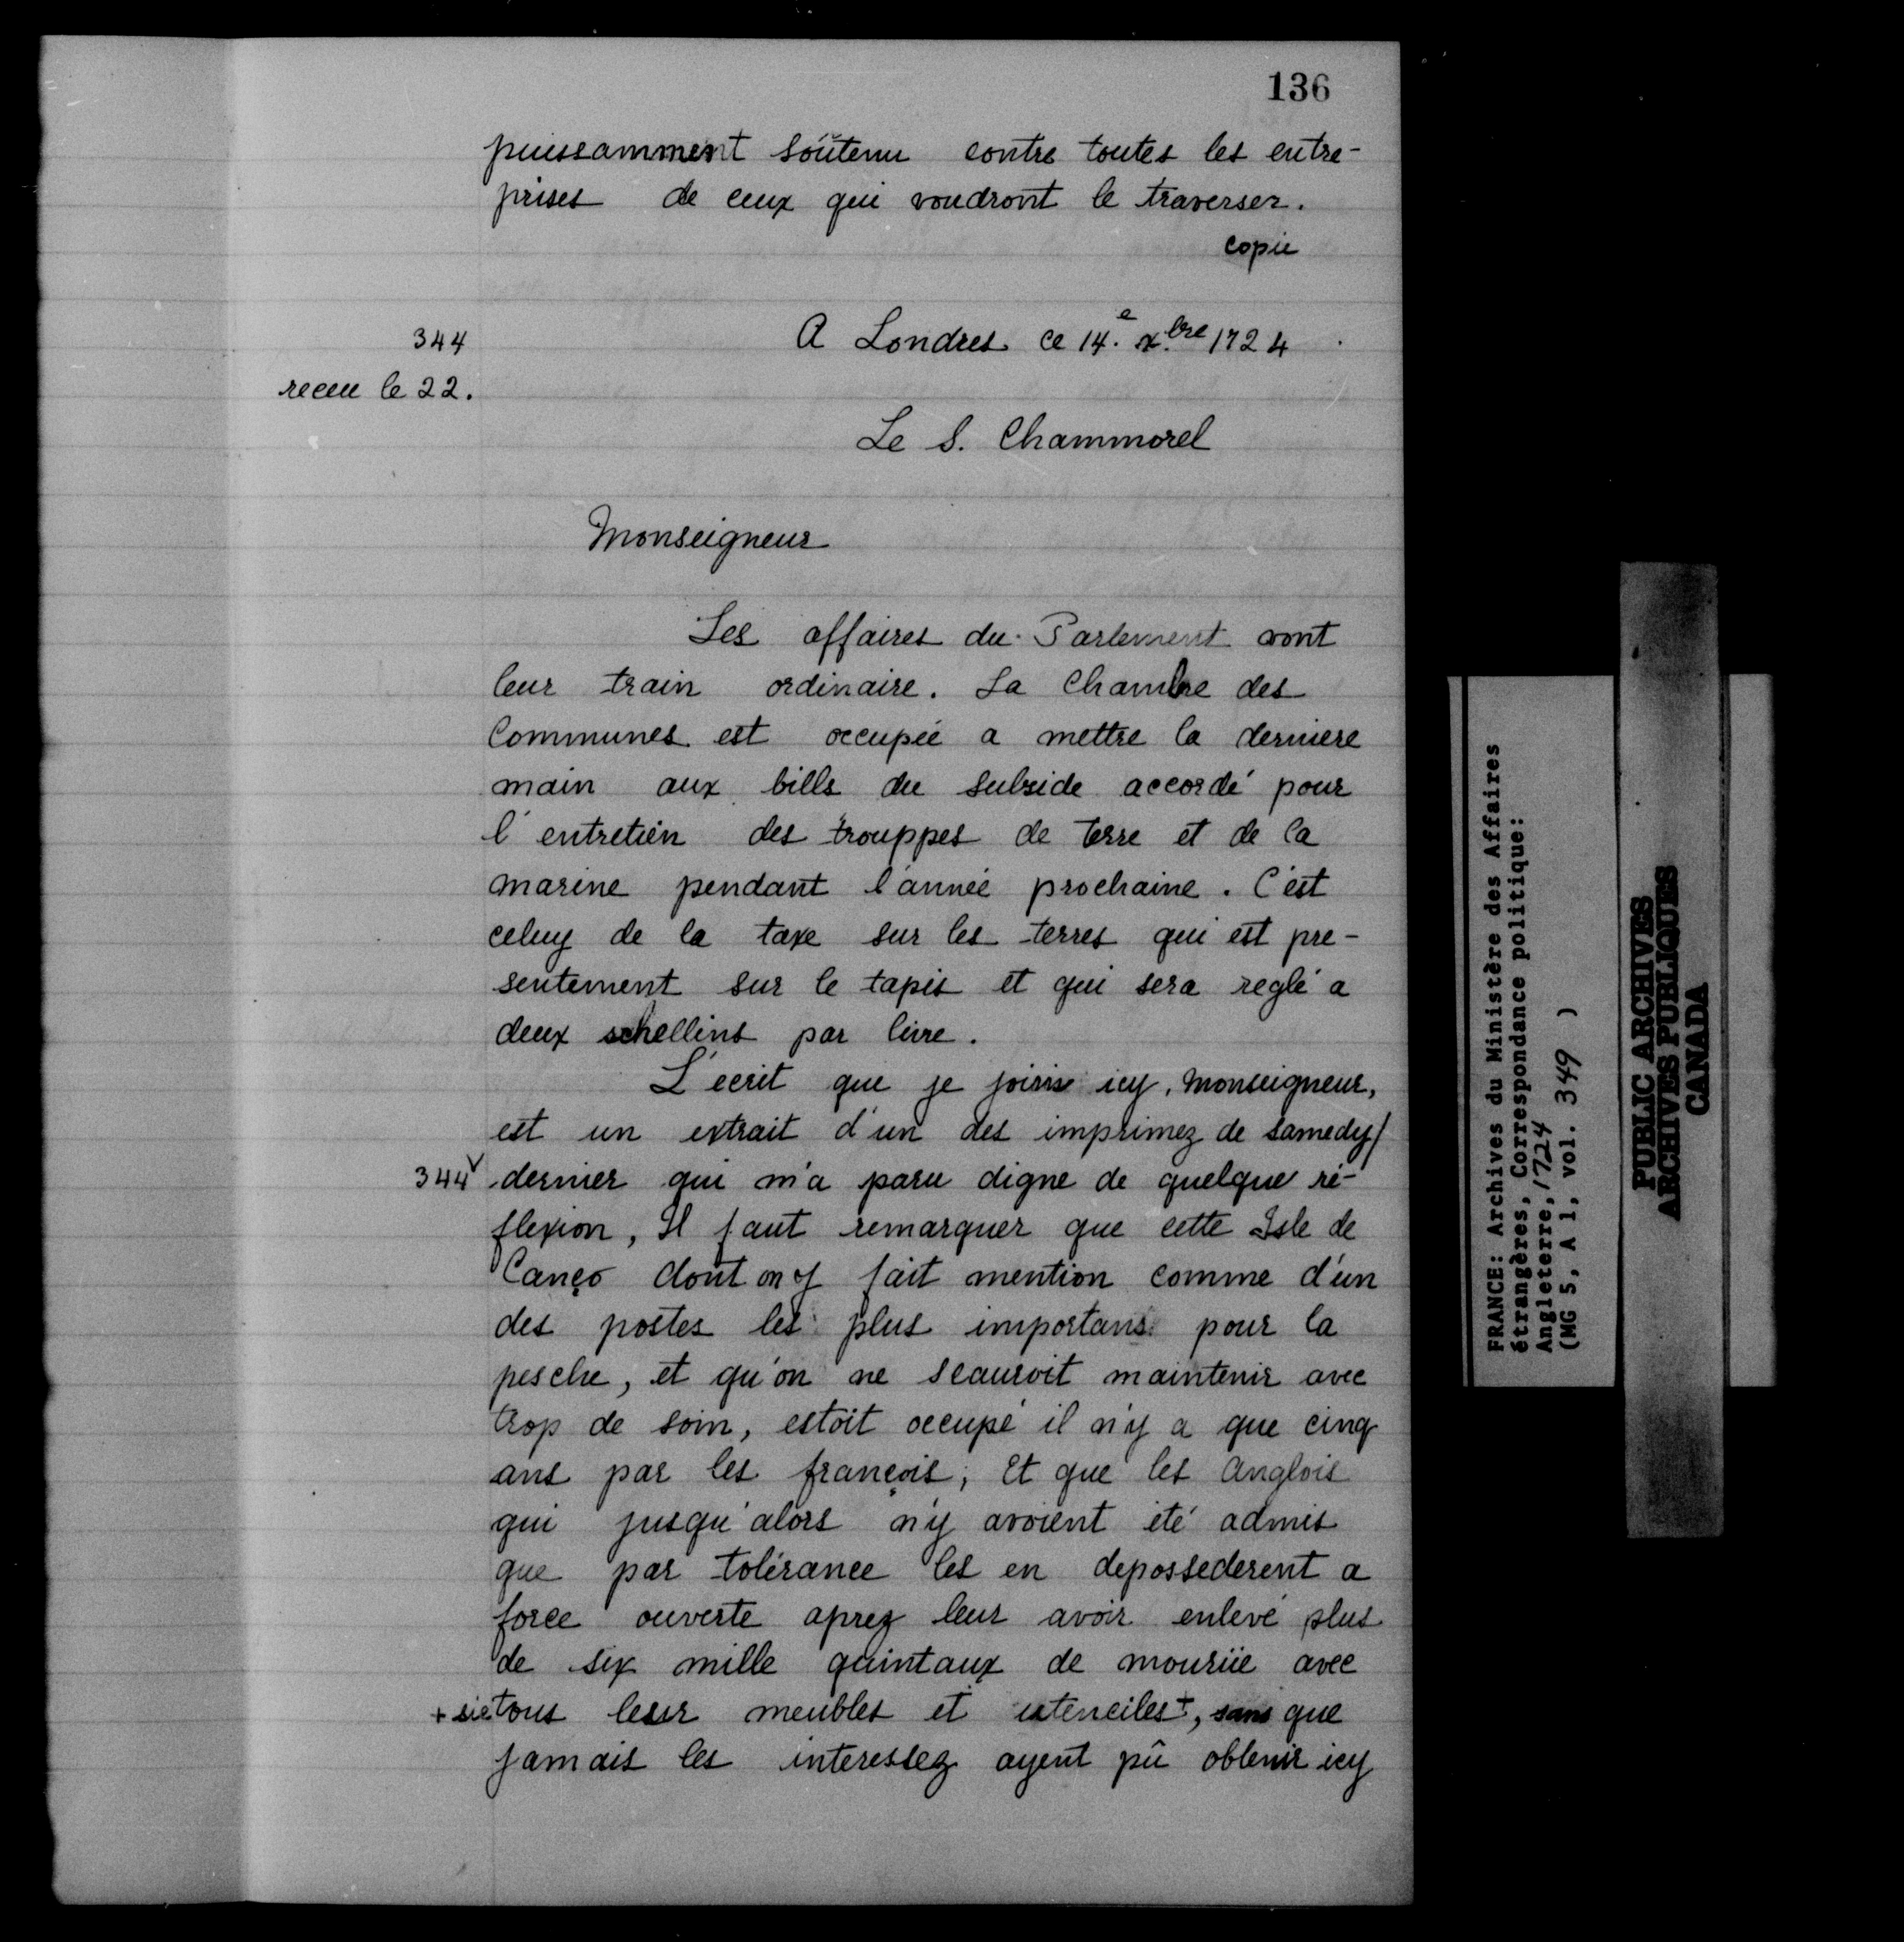 136
puissamment soutenu contre toutes les entre-
prises de ceux qui voudront le traverser.
copie
344
A Londres ce 14.e xbre 1724
receu le 22.
Le S. Chammorel
Monseigneur
Les affaires du Parlement vont
leur train ordinaire. La Chambre des
Communes est occupée a mettre la derniere
main aux bills du subside accordé pour
l'entretien des trouppes de terre et de la
marine pendant l'année prochaine. C'est
celuy de la taxe sur les terres qui est pre-
sentement sur le tapis et qui sera reglé a
deux schellins par livre.
L'ecrit que je joins icy, Monseigneur,
est un extrait d'un des imprimez de samedy/
344v dernier qui m'a paru digne de quelque ré-
flexion, Il faut remarquer que cette Isle de
Canço dont on y fait mention comme d'un
des postes les plus importans pour la
pesche, et qu'on ne scauroit maintenir avec
trop de soin, estoit occupé il n'y a que cinq
ans par les françois; Et que les anglois
qui jusqu'alors n'y avoient été admis
que par tolérance les en deposséderent a
force ouverte aprez leur avoir enlevé plus
de six mille quintaux de mouriie avec
+ sic tous leur meubles et ustenciles +, sans que
jamais les interessez ayent pû obtenir icy
FRANCE: Archives du Ministère des Affaires
étrangères, Correspondance politique:
Angleterre, 1724
(MG 5, A 1, vol. 349 )
PUBLIC ARCHIVES
ARCHIVES PUBLIQUES
CANADA